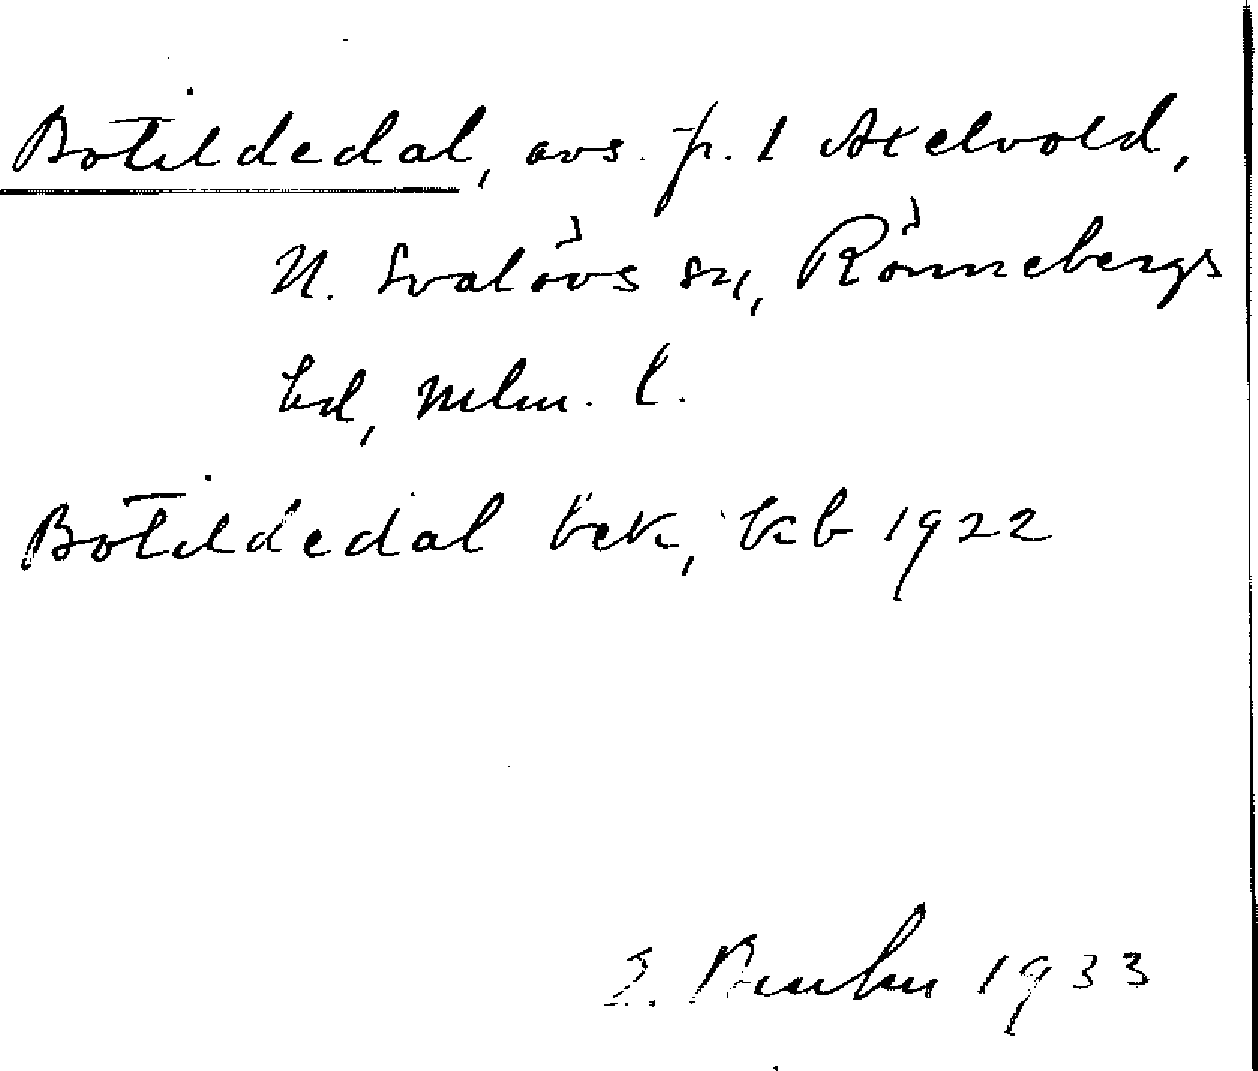 Botildedal, avs. fr. 1 Axelvold,
N. Svalövs sn, Rönnebergs
hd, Mlm. l.
Botildedal tck, kb 1922
1933